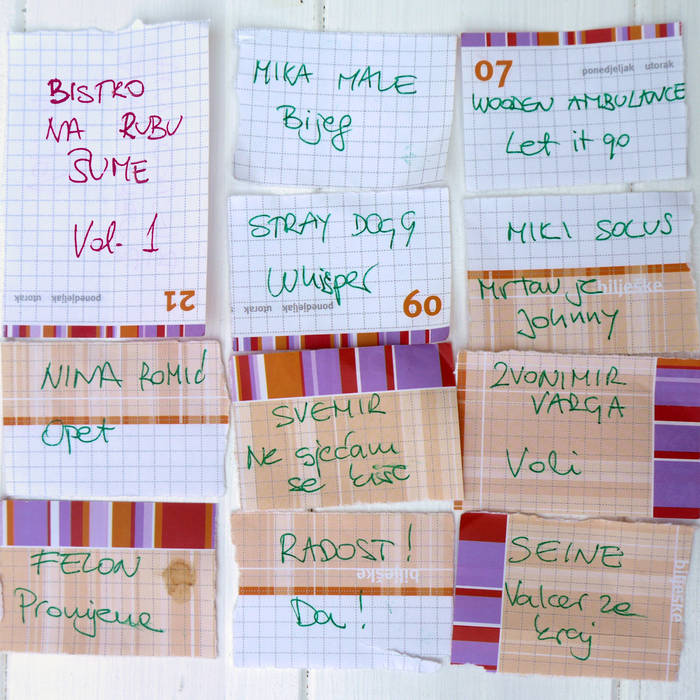 BISTRO
NA RUBU
ŠUME
Vol. 1
ponedjeljak utorak
21
MIKA MALE
Bijeg
07
ponedjeljak utorak
WOODEN AMBULANCE
Let it go
STRAY DOGG
Whisper
ponedjeljak utorak
09
MIKI SOLUS
bilješke
Mrtav je
Johnny
NINA ROMIĆ
Opet
SVEMIR
Ne sjećam
se kiše
ZVONIMIR
VARGA
Voli
FELON
Promjena
RADOST!
bilješke
Da!
SEINE
Valcer za
kraj
bilješke